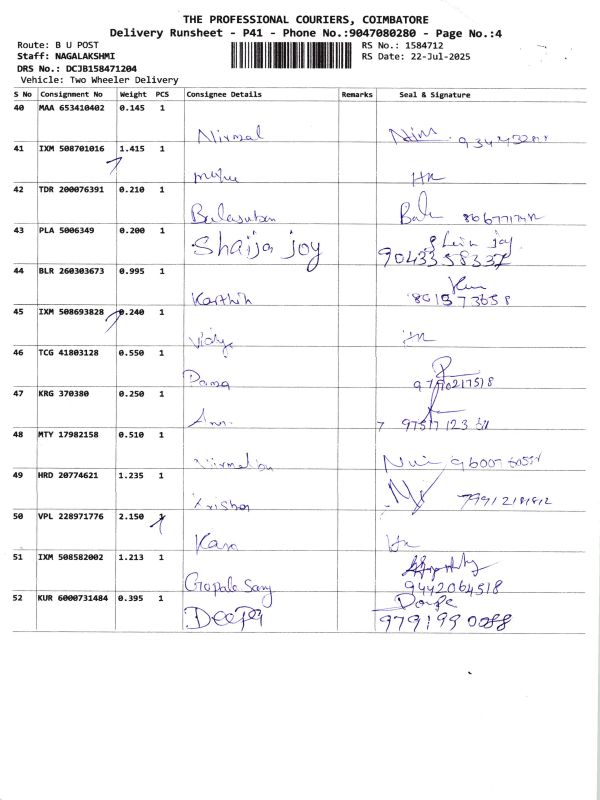 THE PROFESSIONAL COURIERS, COIMBATORE
Delivery Runsheet - P41 - Phone No.:9047080280 - Page No.:4
Route: B U POST RS No.: 1584712
Staff: NAGALAKSHMI RS Date: 22-Jul-2025
DRS No.: DCJB158471204
Vehicle: Two Wheeler Delivery
S No Consignment No Weight PCS Consignee Details Remarks Seal & Signature
40 MAA 653410402 0.145 1
Nirmal
41 IXM 508701016 1.415 1
42 TDR 200076391 0.210 1
Balasuban
43 PLA 5006349 0.200 1
Shaija joy 9043358337
44 BLR 260303673 0.995 1
Karthik 801573658
45 IXM 508693828 0.240 1
46 TCG 41803128 0.550 1
9790217518
47 KRG 370380 0.250 1
48 MTY 17982158 0.510 1
49 HRD 20774621 1.235 1
50 VPL 228971776 2.150 1
51 IXM 508582002 1.213 1
Gopala Samy 9442064518
52 KUR 6000731484 0.395 1
Deepa 9791990088